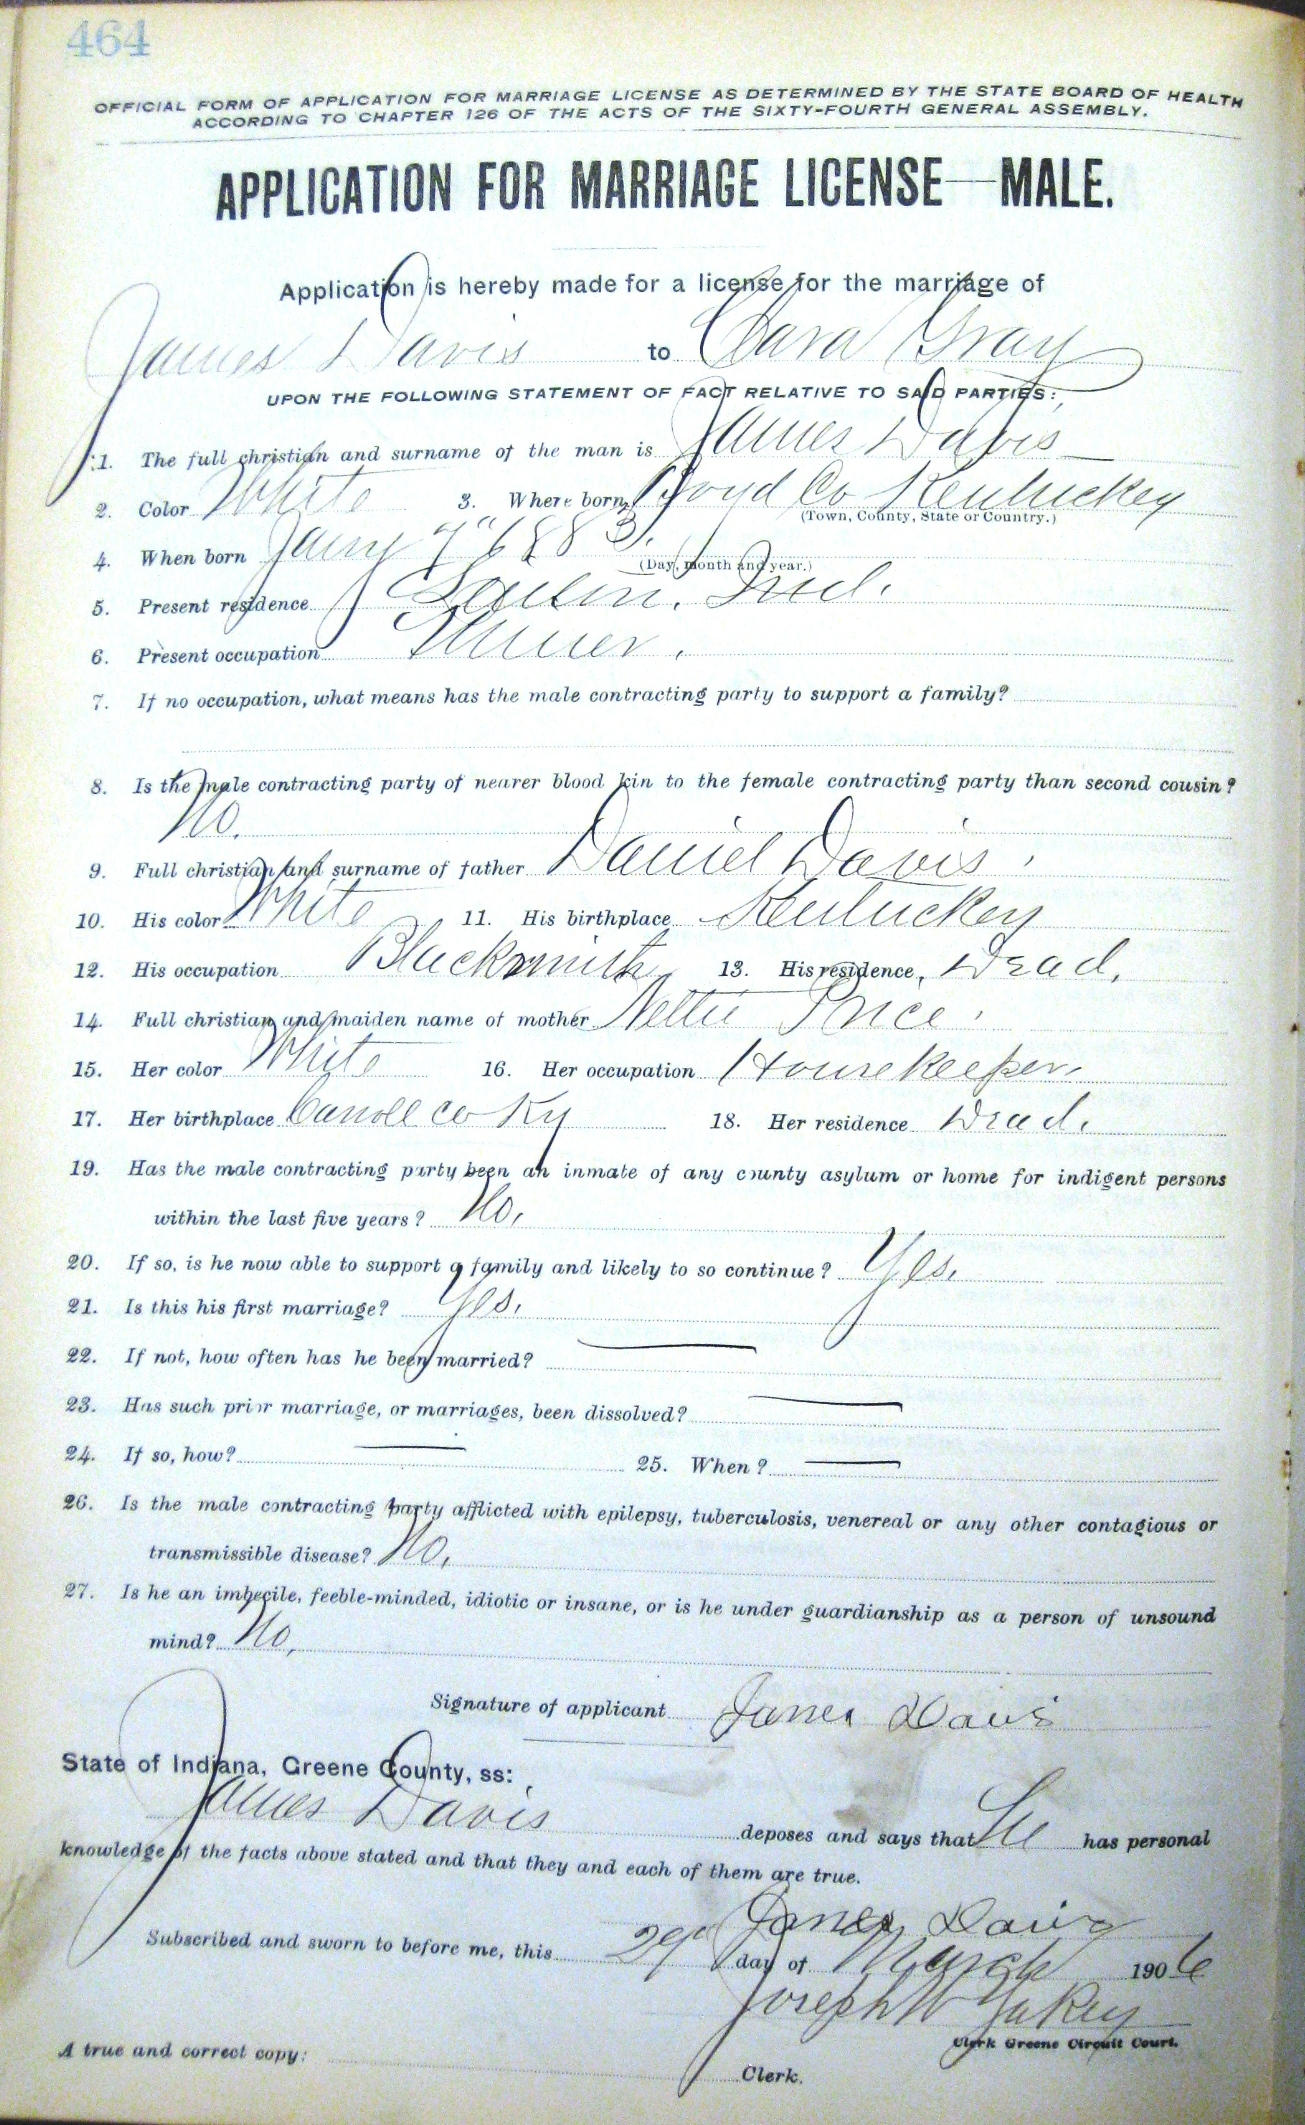 464
OFFICIAL FORM OF APPLICATION FOR MARRIAGE LICENSE AS DETERMINED BY THE STATE BOARD OF HEALTH
ACCORDING TO CHAPTER 126 OF THE ACTS OF THE SIXTY-FOURTH GENERAL ASSEMBLY.
APPLICATION FOR MARRIAGE LICENSE—MALE.
Application is hereby made for a license for the marriage of
James Davis to Clara Gray
UPON THE FOLLOWING STATEMENT OF FACT RELATIVE TO SAID PARTIES:
1. The full christian and surname of the man is James Davis
2. Color White 3. Where born Boyd Co Kentuckey
(Town, County, State or Country.)
4. When born Jany 7"
(Day, month and year.)
5. Present residence Linton, Ind.
6. Present occupation Miner.
7. If no occupation, what means has the male contracting party to support a family?
8. Is the male contracting party of nearer blood kin to the female contracting party than second cousin?
No.
9. Full christian and surname of father Daniel Davis.
10. His color White 11. His birthplace Kentuckey
12. His occupation Blacksmith 13. His residence, Dead.
14. Full christian and maiden name of mother Nettie Price.
15. Her color White 16. Her occupation Housekeeper.
17. Her birthplace Carroll Co Ky 18. Her residence Dead.
19. Has the male contracting party been an inmate of any county asylum or home for indigent persons
within the last five years? No.
20. If so, is he now able to support a family and likely to so continue? Yes.
21. Is this his first marriage? Yes.
22. If not, how often has he been married?
23. Has such prior marriage, or marriages, been dissolved?
24. If so, how? 25. When?
26. Is the male contracting party afflicted with epilepsy, tuberculosis, venereal or any other contagious or
transmissible disease? No.
27. Is he an imbecile, feeble-minded, idiotic or insane, or is he under guardianship as a person of unsound
mind? No.
Signature of applicant James Davis
State of Indiana, Greene County, ss:
James Davis deposes and says that He has personal
knowledge of the facts above stated and that they and each of them are true.
James Davis
Subscribed and sworn to before me, this 29" day of March 1906
Joseph W Yakey
Clerk Greene Circuit Court.
A true and correct copy: Clerk.